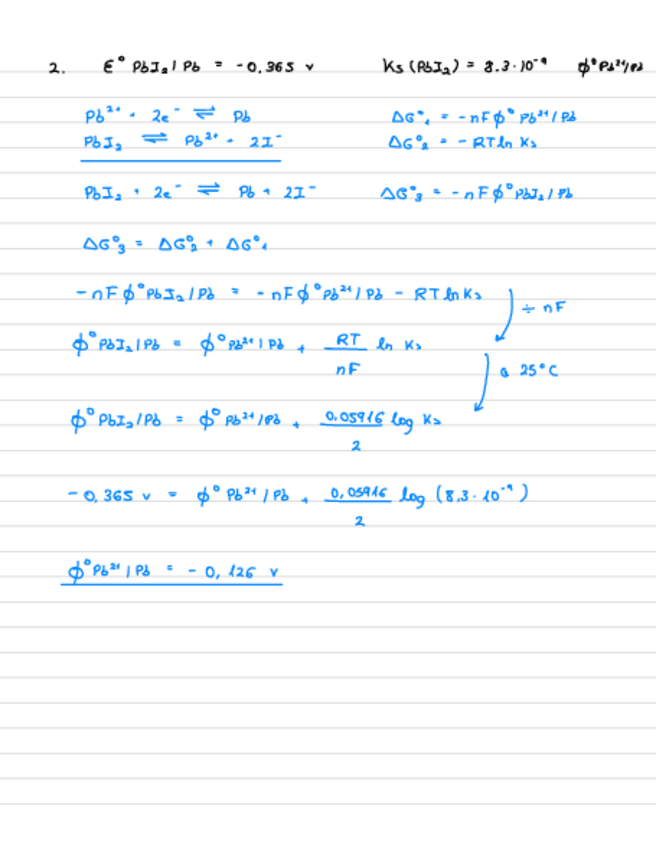 2. E° PbI₂ | Pb = -0.365 v Ks (PbI₂) = 8.3·10⁻⁹ ϕ° Pb²⁺/Pb
Pb²⁺ + 2e⁻ ⇌ Pb ΔG°₁ = -nFϕ° Pb²⁺/Pb
PbI₂ ⇌ Pb²⁺ + 2I⁻ ΔG°₂ = -RT ln Ks
PbI₂ + 2e⁻ ⇌ Pb + 2I⁻ ΔG°₃ = -nFϕ° PbI₂/Pb
ΔG°₃ = ΔG°₂ + ΔG°₁
-nFϕ° PbI₂/Pb = -nFϕ° Pb²⁺/Pb - RT ln Ks
÷ nF
ϕ° PbI₂/Pb = ϕ° Pb²⁺/Pb + RT/nF ln Ks
a 25°C
ϕ° PbI₂/Pb = ϕ° Pb²⁺/Pb + 0.05916/2 log Ks
-0,365 v = ϕ° Pb²⁺/Pb + 0,05916/2 log (8,3·10⁻⁹)
ϕ° Pb²⁺/Pb = -0,126 v